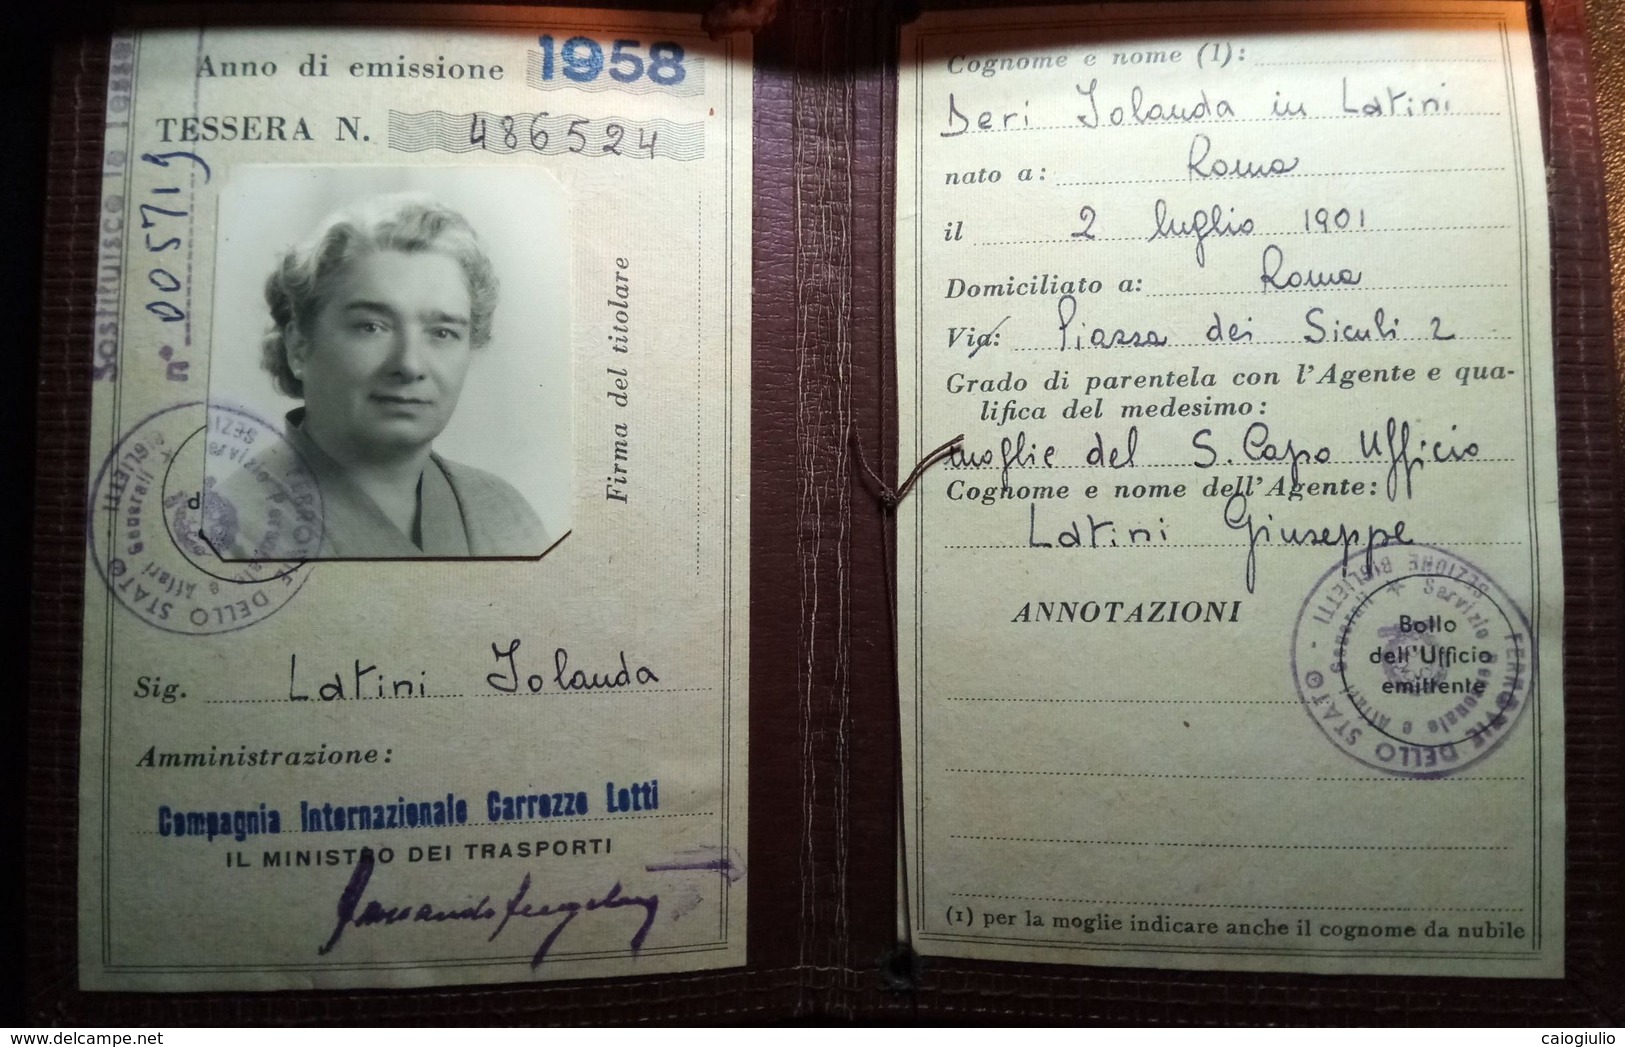 Anno di emissione 1958
TESSERA N. 486524
Sostituisce la tessera
n° 005719
Firma del titolare
Sig. Latini Jolanda
Amministrazione:
Compagnia Internazionale Carrozze Letti
IL MINISTRO DEI TRASPORTI
FERROVIE DELLO STATO
SEZIONE BIGLIETTI
Servizio Personale e Affari Generali
Cognome e nome (1):
Deri Jolanda in Latini
nato a: Roma
il 2 luglio 1901
Domiciliato a: Roma
Via: Piazza dei Siculi 2
Grado di parentela con l'Agente e qua-
lifica del medesimo:
moglie del S. Capo Ufficio
Cognome e nome dell'Agente:
Latini Giuseppe
ANNOTAZIONI
Bollo
dell'Ufficio
emittente
FERROVIE DELLO STATO
SEZIONE BIGLIETTI
Servizio Personale e Affari Generali
(1) per la moglie indicare anche il cognome da nubile
© delcampe.net
caiogiulio